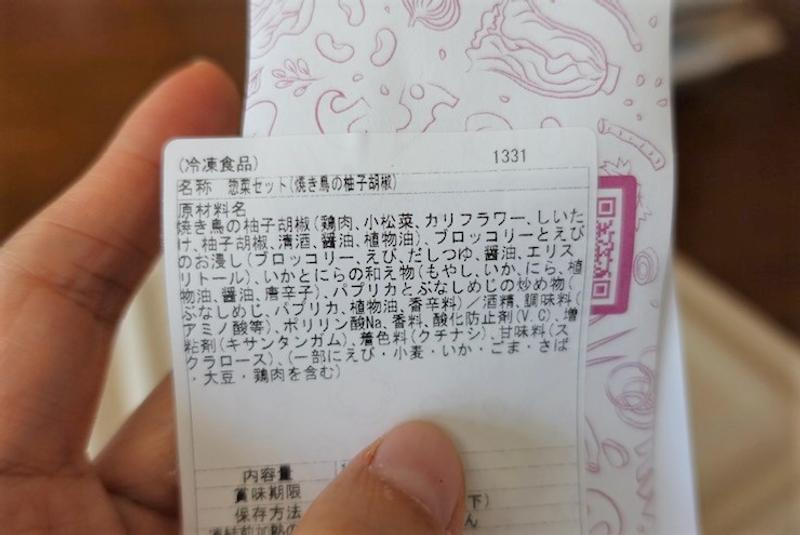 (冷凍食品) 1331
名称 惣菜セット(焼き鳥の柚子胡椒)
原材料名
焼き鳥の柚子胡椒(鶏肉、小松菜、カリフラワー、しいた
け、柚子胡椒、清酒、醤油、植物油)、ブロッコリーとえび
のお浸し(ブロッコリー、えび、だしつゆ、醤油、エリス
リトール)、いかとにらの和え物(もやし、いか、にら、植
物油、醤油、唐辛子)、パプリカとぶなしめじの炒め物(
ぶなしめじ、パプリカ、植物油、香辛料)／酒精、調味料(
アミノ酸等)、ポリリン酸Na、香料、酸化防止剤(V.C)、増
粘剤(キサンタンガム)、着色料(クチナシ)、甘味料(ス
クラロース)、(一部にえび・小麦・いか・ごま・さば
・大豆・鶏肉を含む)
内容量
賞味期限
保存方法 下)
ん